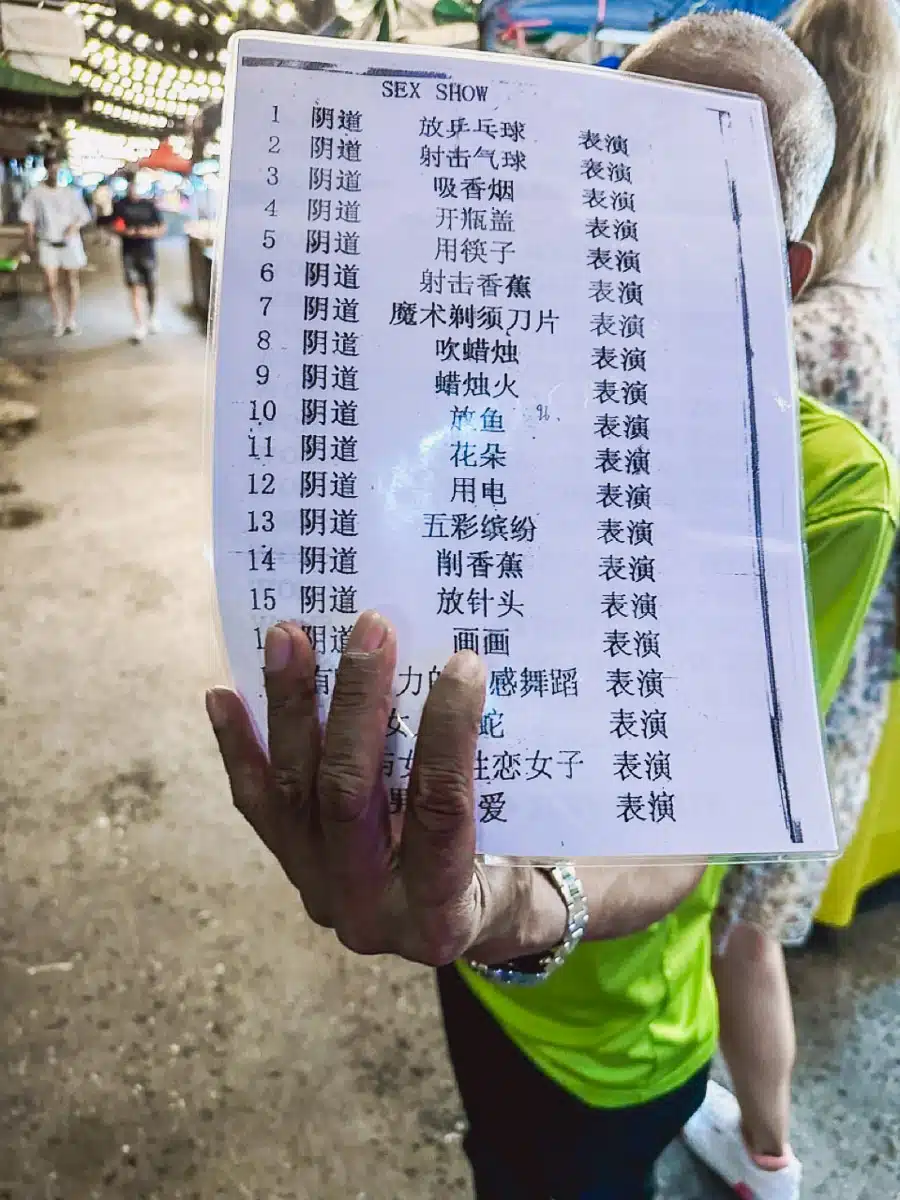 SEX SHOW
1 阴道 放乒乓球 表演
2 阴道 射击气球 表演
3 阴道 吸香烟 表演
4 阴道 开瓶盖 表演
5 阴道 用筷子 表演
6 阴道 射击香蕉 表演
7 阴道 魔术剃须刀片 表演
8 阴道 吹蜡烛 表演
9 阴道 蜡烛火 表演
10 阴道 放鱼 表演
11 阴道 花朵 表演
12 阴道 用电 表演
13 阴道 五彩缤纷 表演
14 阴道 削香蕉 表演
15 阴道 放针头 表演
阴道 画画 表演
有 力 感舞蹈 表演
女 蛇 表演
与女 性恋女子 表演
男 爱 表演